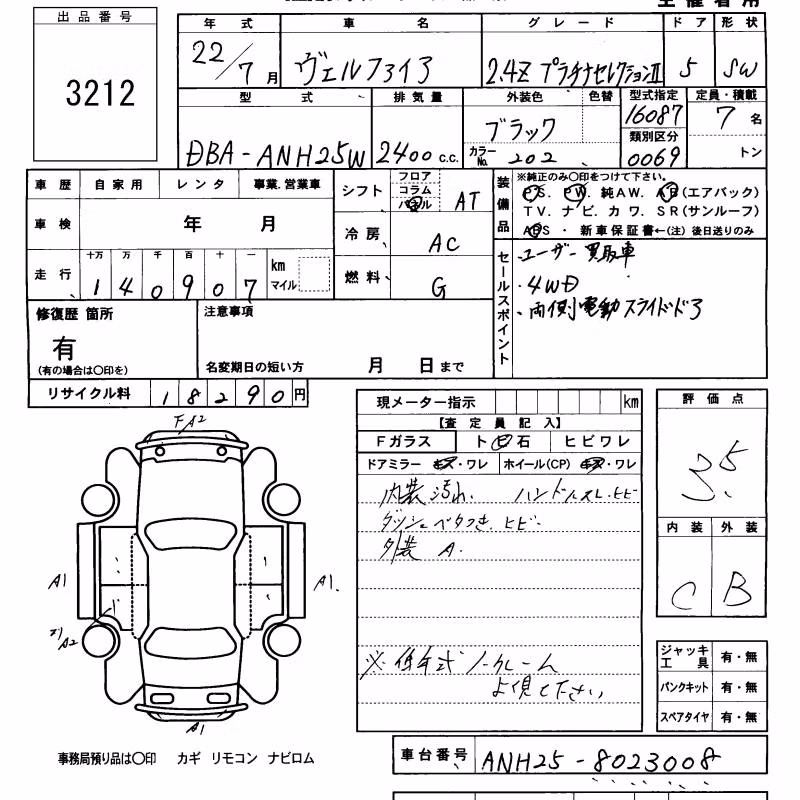 出品番号
3212
年式 車名 グレード ドア 形状
22/7月 ヴェルファイア 2.4Z プラチナセレクションII 5 SW
型式 排気量 外装色 色替 型式指定 定員・積載
DBA-ANH25W 2400c.c. ブラック 16087 7名
カラーNo. 202 類別区分 0069 トン
車歴 自家用 レンタ 事業.営業車
車検 年 月
走行 十万 万 千 百 十 一
140907 km マイル
シフト フロア コラム パネル AT
冷房 AC
燃料 G
装備品
※純正のみ〇印をつけて下さい。
PS. PW. 純AW. AB(エアバック)
TV. ナビ. カワ. SR(サンルーフ)
ABS ・ 新車保証書←(注)後日送りのみ
セールスポイント
・ユーザー買取車
・4WD
・両側電動スライドドア
修復歴 箇所
有
(有の場合は〇印を)
注意事項
名変期日の短い方 月 日まで
リサイクル料 18290円
現メーター指示 km
【査定員記入】
Fガラス ト 石 ヒビワレ
ドアミラー キズ・ワレ ホイール(CP) キズ・ワレ
内装汚れ ハンドルスレ.ヒビ
ダッシュベタつき.ヒビ
外装 A.
※低年式ノークレーム
よく見て下さい
評価点
3.5
内装 外装
C B
ジャッキ工具 有・無
パンクキット 有・無
スペアタイヤ 有・無
F A2
A1
A1.
A2
A1
事務局預り品は〇印 カギ リモコン ナビロム
車台番号 ANH25-8023008